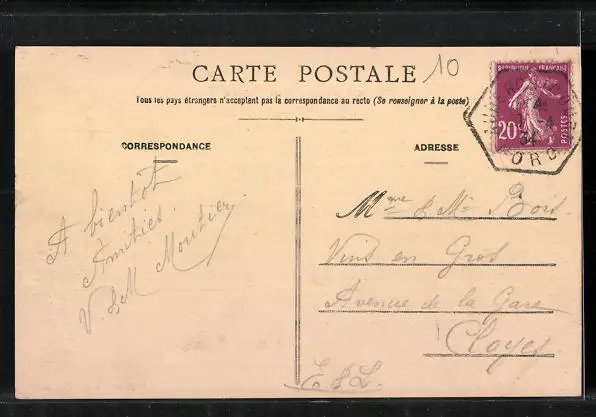 CARTE POSTALE
10
Tous les pays étrangers n'acceptent pas la correspondance au recto (Se renseigner à la poste)
REPUBLIQUE FRANÇAISE
20c
POSTES
4
34
ORC
CORRESPONDANCE
ADRESSE
A bientôt
Amitiés.
V. & M Mouhier
Mme & Mr Bois.
Vins en Gros
Avenue de la Gare
Cloyes
E & L.